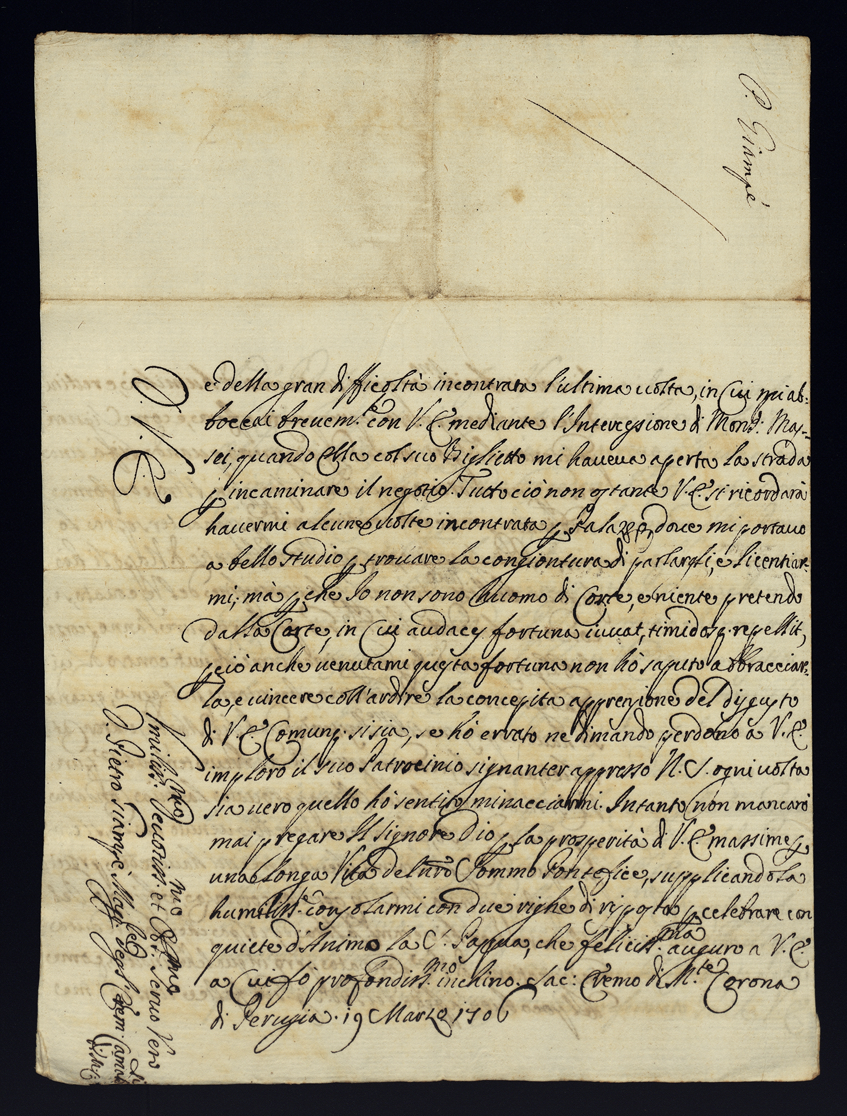 P. Giampè
e della gran difficoltà incontrata l'ultima uolta, in Cui mi ab:
boccai breuem.te con V. E. mediante l'Intercessione di Mons.r Mas-
sei, quando Ella col suo Biglietto mi haueua aperta la strada
p incaminare il negotio. Tutto ciò non ostante V. E. si ricordarà
hauermi alcune uolte incontrata p Palazzo, doue mi portauo
a bello studio p trouare la congiontura di parlargli, e licentiar-
mi; mà p che Io non sono huomo di Corte, e niente pretendo
dalla Corte, in Cui audaces fortuna iuuat, timidosq. repellit,
pciò anche uenutami questa fortuna non hò saputo abbracciar-
la, e uincere coll'ardire la concepita apprensione del Disgusto
di V. E. Comunq. si sia, se hò errato ne dimando perdono a V. E.
imploro il suo Patrocinio signanter appresso N. S. ogni uolta
sia uero quello hò sentito minacciarmi. Intanto non mancarò
mai pregare Il Signore Dio p la prosperità di V. E. massime p
una longa Vita del nro Sommo Pontefice, supplicandola
humiliss.te consolarmi con due righe di risposta p celebrare con
quiete d'Animo la S. Pasqua, che feliciss.ma auguro a V. E.
a Cui fò profondiss.mo inchino. Sac: Eremo di M.te Corona
di Perugia. 19 Marzo 1706
D. V. E.
Vmiliss.mo Deuotiss.mo et Obb.mo Seruo Vero
D. Pietro Giampè Magg.re degl' Erem. Camal